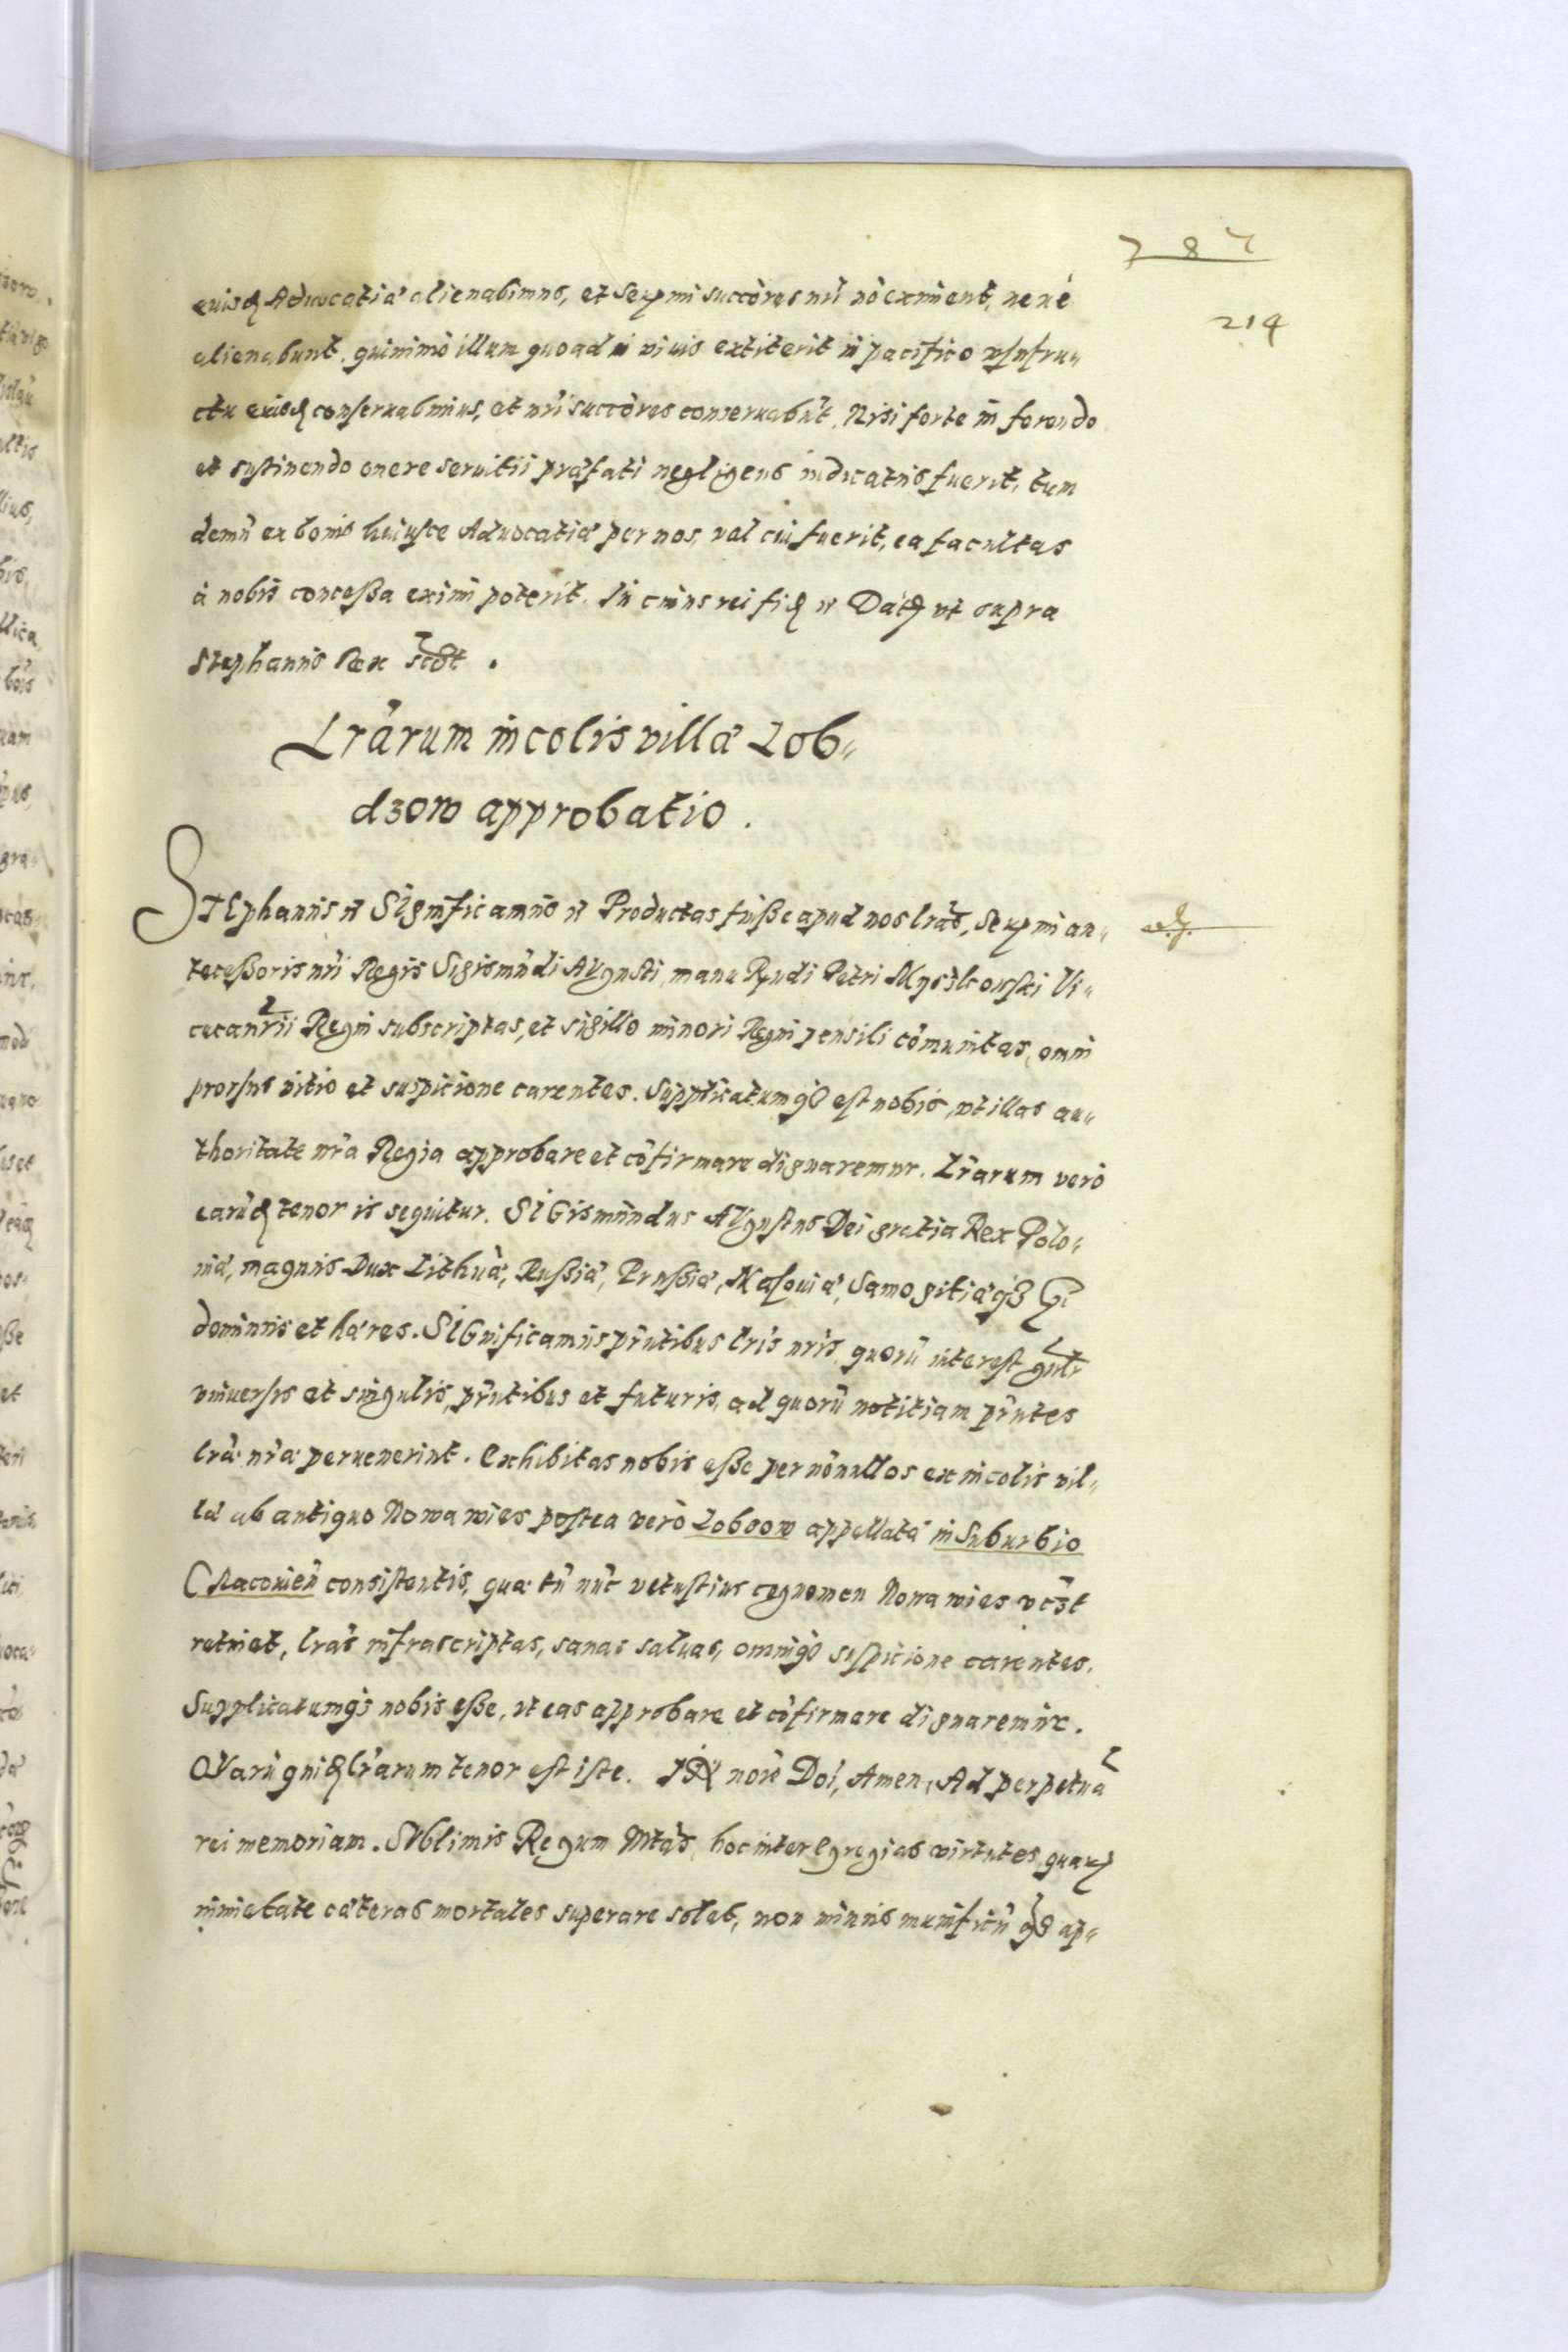 787
214
euisđ Aduocatiæ alienabimus, et Sermi succōres nr̄i nō eximent, neué
alienabunt. quinimò illum quoad in viuis extiterit in pacifico vsufru„
ctu eiusđ conseruabimus, et nr̄i succōres conseruabūt. Nisi forte in ferendo
et sustinendo onere seruitii præfati negligens iudicatus fuerit, tum
demū ex bonis huiusce Aduocatiæ per nos, vel cui fuerit, ea facultas
à nobis conceßa eximi poterit. In cuius rei fiđ ꝛc Datꝫ vt supra
Stephanus Rex sc̄dt.
Lr̄arum incolis villæ Lob„
dzow approbatio.
STEphanus ꝛc SIgnificamus ꝛc Productas fuiße apud nos lrās, Sermi an„
teceßoris nr̄i Regis Sigismūdi AVgusti, manu Rn̄di Petri Myszkowski Vi„
cecanrii Regni subscriptas, et sigillo minori Regni pensili cōmunitas, omni
prorsus vitio et suspicione carentes. Supplicatumqꝫ est nobis, vt illas au„
thoritate nr̄a Regia approbare et cōfirmare dignaremur. Lr̄arum verò
earūđ tenor is sequitur. SIGismundus AVgustus Dei gratia Rex Polo„
niæ, magnus Dux Lithuæ, Rußiæ, Prußiæ, Masouiæ, Samogitiæqꝫ ꝛc
dominus et hæres. SIGnificamus pn̄tibus lris nris, quorū interest gnli
vniuersis et singulis, pn̄tibus et futuris, ad quorū notitiam pn̄tes
lræ nræ peruenerint. Exhibitas nobis eße per nōnullos ex incolis vil„
læ ab antiquo Nowa wies postea verò Lobzow appellatæ in Suburbio
CRacouien̄ consistentis, quæ tn̄ nūc vetustius cognomen Nowa wies vcꝫt
retinet, lrās infrascriptas, sanas saluas, omniqꝫ suspicione carentes.
Supplicatumqꝫ nobis eße, vt eas approbare et cōfirmare dignaremur.
QVarū quiđ lr̄arum tenor est iste. IN noīe Doī, Amen, Ad perpetuā
rei memoriam. SVblimis Regum Mtās, hoc inter Egregias virtutes, quarꝫ
nimietate cæteras mortales superare solet, non minus munificū qꝫ ap„